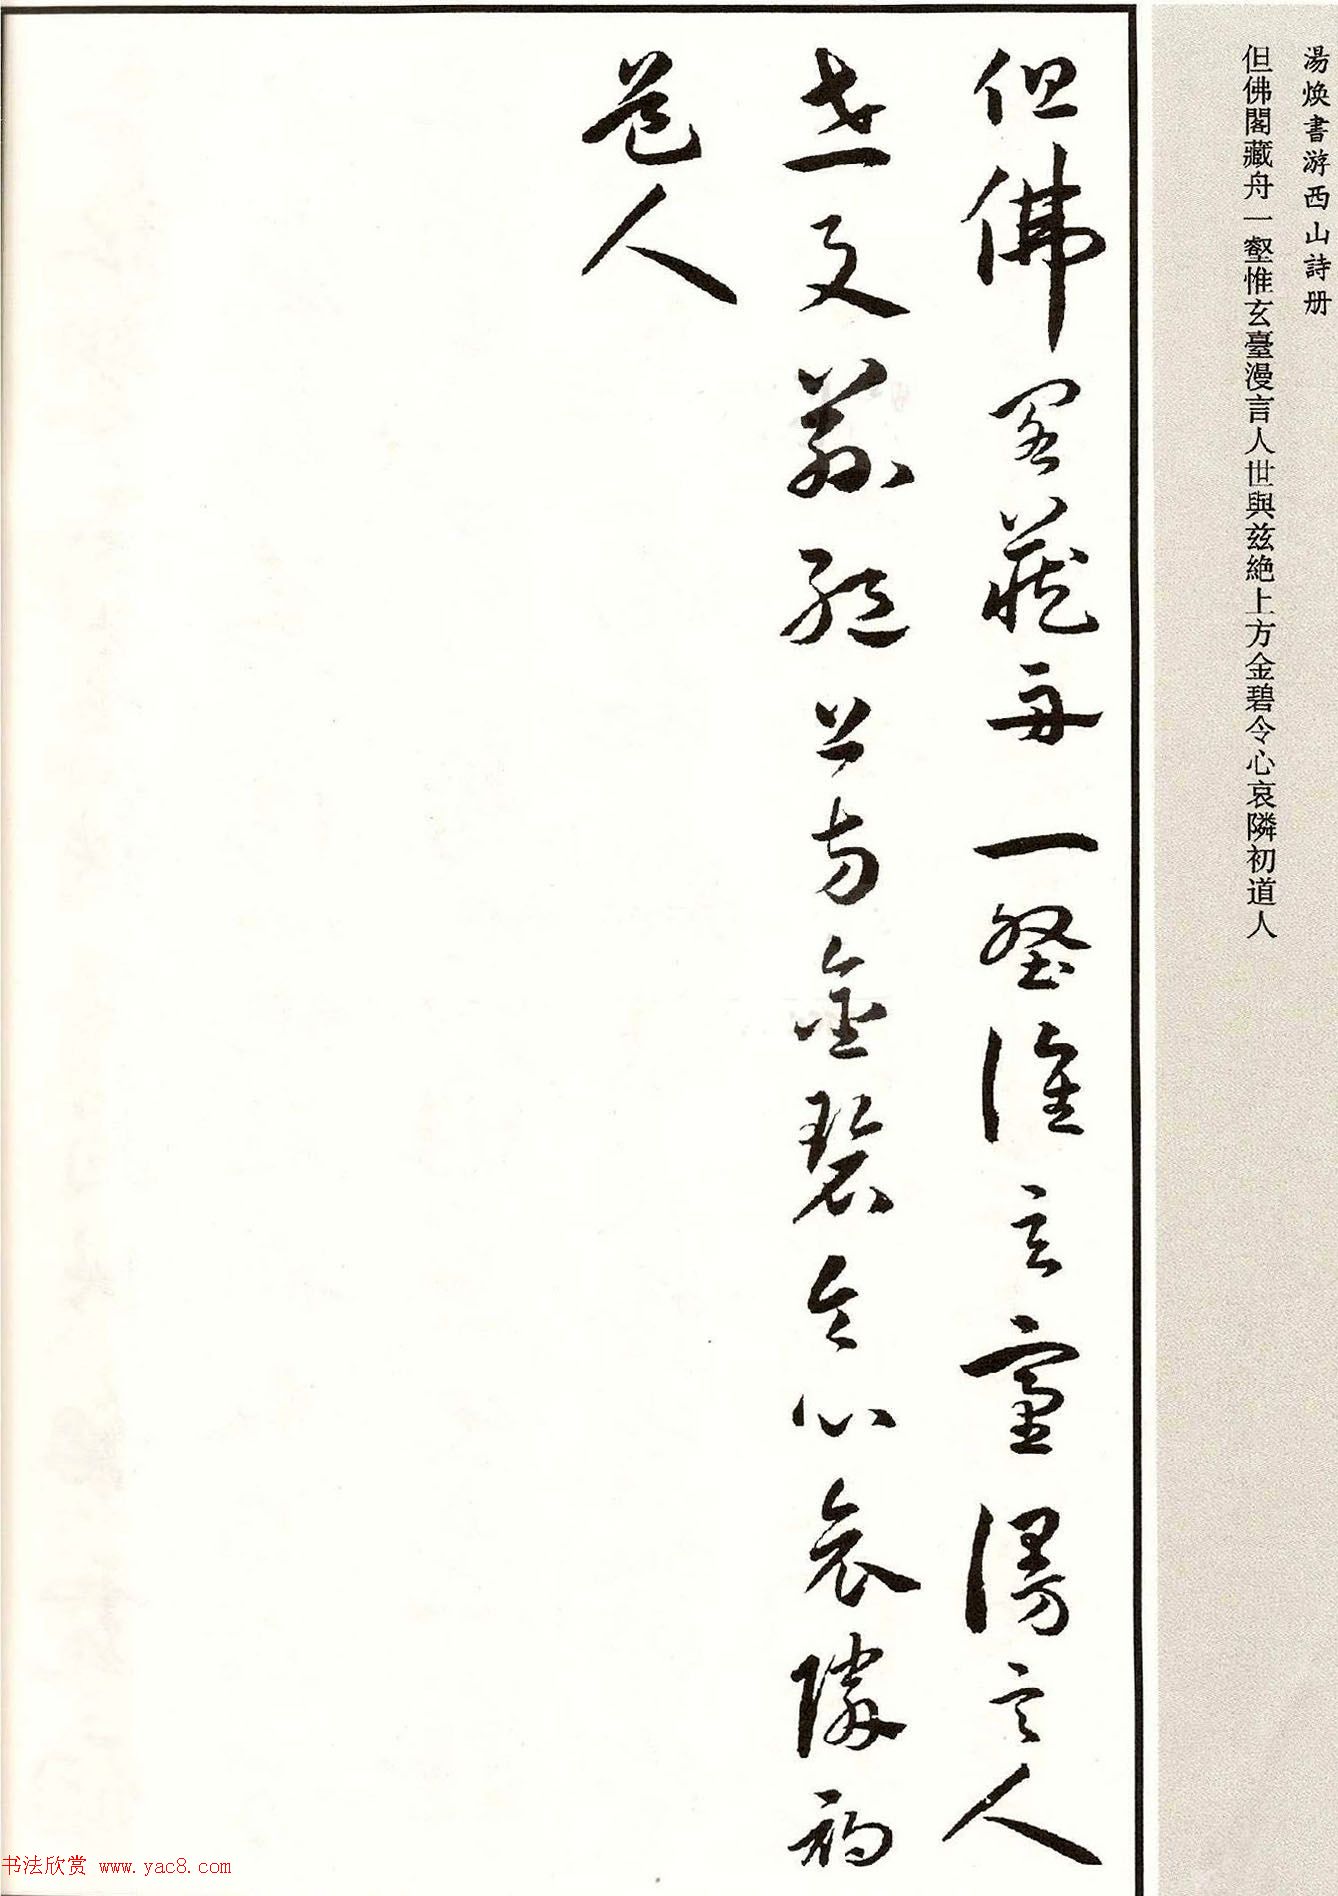 湯焕書游西山詩册
但佛閣藏舟一壑惟玄臺漫言人世與兹絶上方金碧令心哀隣初道人
但佛閣藏舟一壑惟玄臺漫言人
世與兹絶上方金碧令心哀隣初
道人
书法欣赏 www.yac8.com